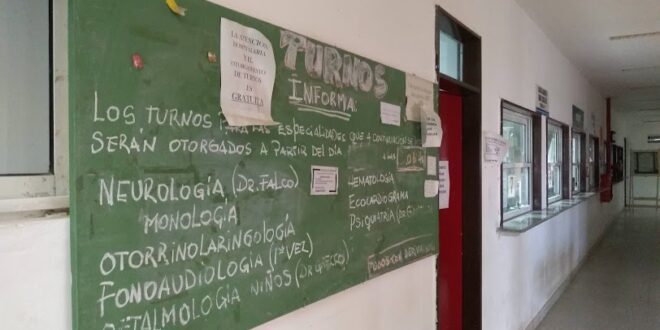 LA ATENCIÓN
HOSPITALARIA
Y EL
OTORGAMIENTO
DE TURNOS
ES
GRATUITA
TURNOS
INFORMA
LOS TURNOS PARA LAS ESPECIALIDADES QUE A CONTINUACIÓN SE
SERÁN OTORGADOS A PARTIR DEL DÍA
A LAS
NEUROLOGÍA (DR. FALCO)
MONOLOGÍA
OTORRINOLARINGOLOGÍA
FONOAUDIOLOGÍA (1ª VEZ)
OFTALMOLOGÍA NIÑOS (DR
HEMATOLOGÍA
ECOCARDIOGRAMA
PSIQUIATRÍA (DR.
TODOS CON DERIVACIÓN